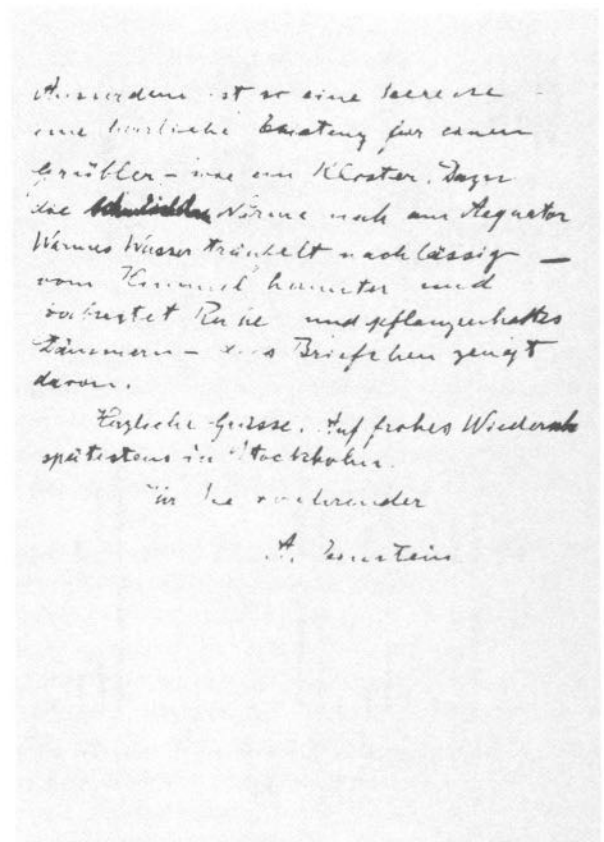 Ausserdem ist so eine Seereise
eine herrliche Existenz für einen
Grübler – wie ein Kloster. Dazu
die Wärme nach am Aequator
Warmes Wasser träufelt nachlässig –
vom Himmel herunter und
verbreitet Ruhe und pflanzenhaftes
Dämmern – dies Briefchen zeugt
davon.
Herzliche Grüsse. Auf frohes Wiedersehn
spätestens in Stockholm.
Ihr Sie verehrender
A. Einstein